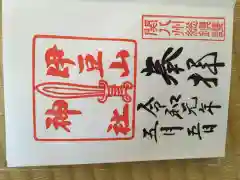 關八州總鎮護
奉拝
令和元年
五月五日
伊豆山
神社